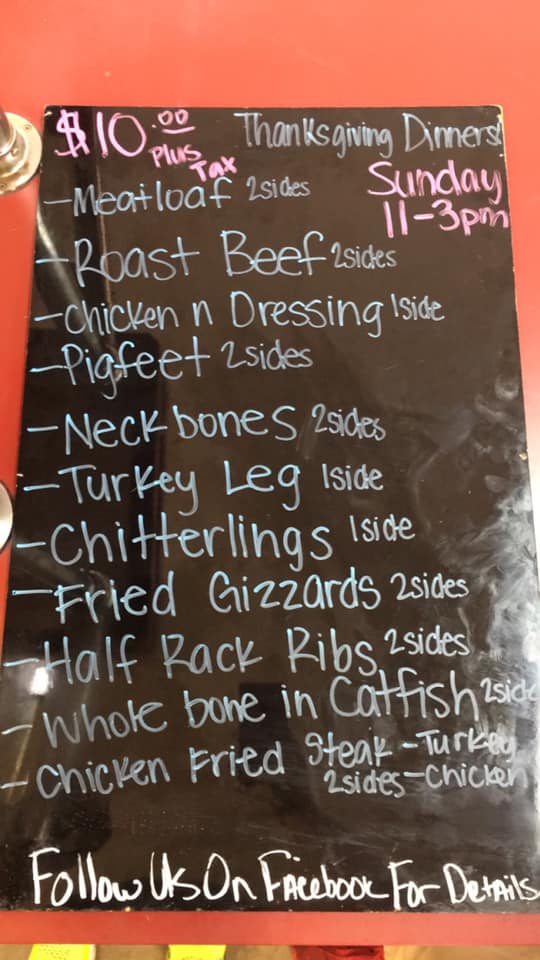 $10.00 Thanksgiving Dinners!
Plus Tax
Sunday
11-3pm
-Meatloaf 2sides
-Roast Beef 2sides
-Chicken n Dressing 1side
-Pigfeet 2sides
-Neckbones 2sides
-Turkey Leg 1side
-Chitterlings 1side
-Fried Gizzards 2sides
-Half Rack Ribs 2sides
-Whole bone in Catfish 2side
-Chicken Fried Steak -Turkey
2sides -Chicken
Follow Us On Facebook For Details